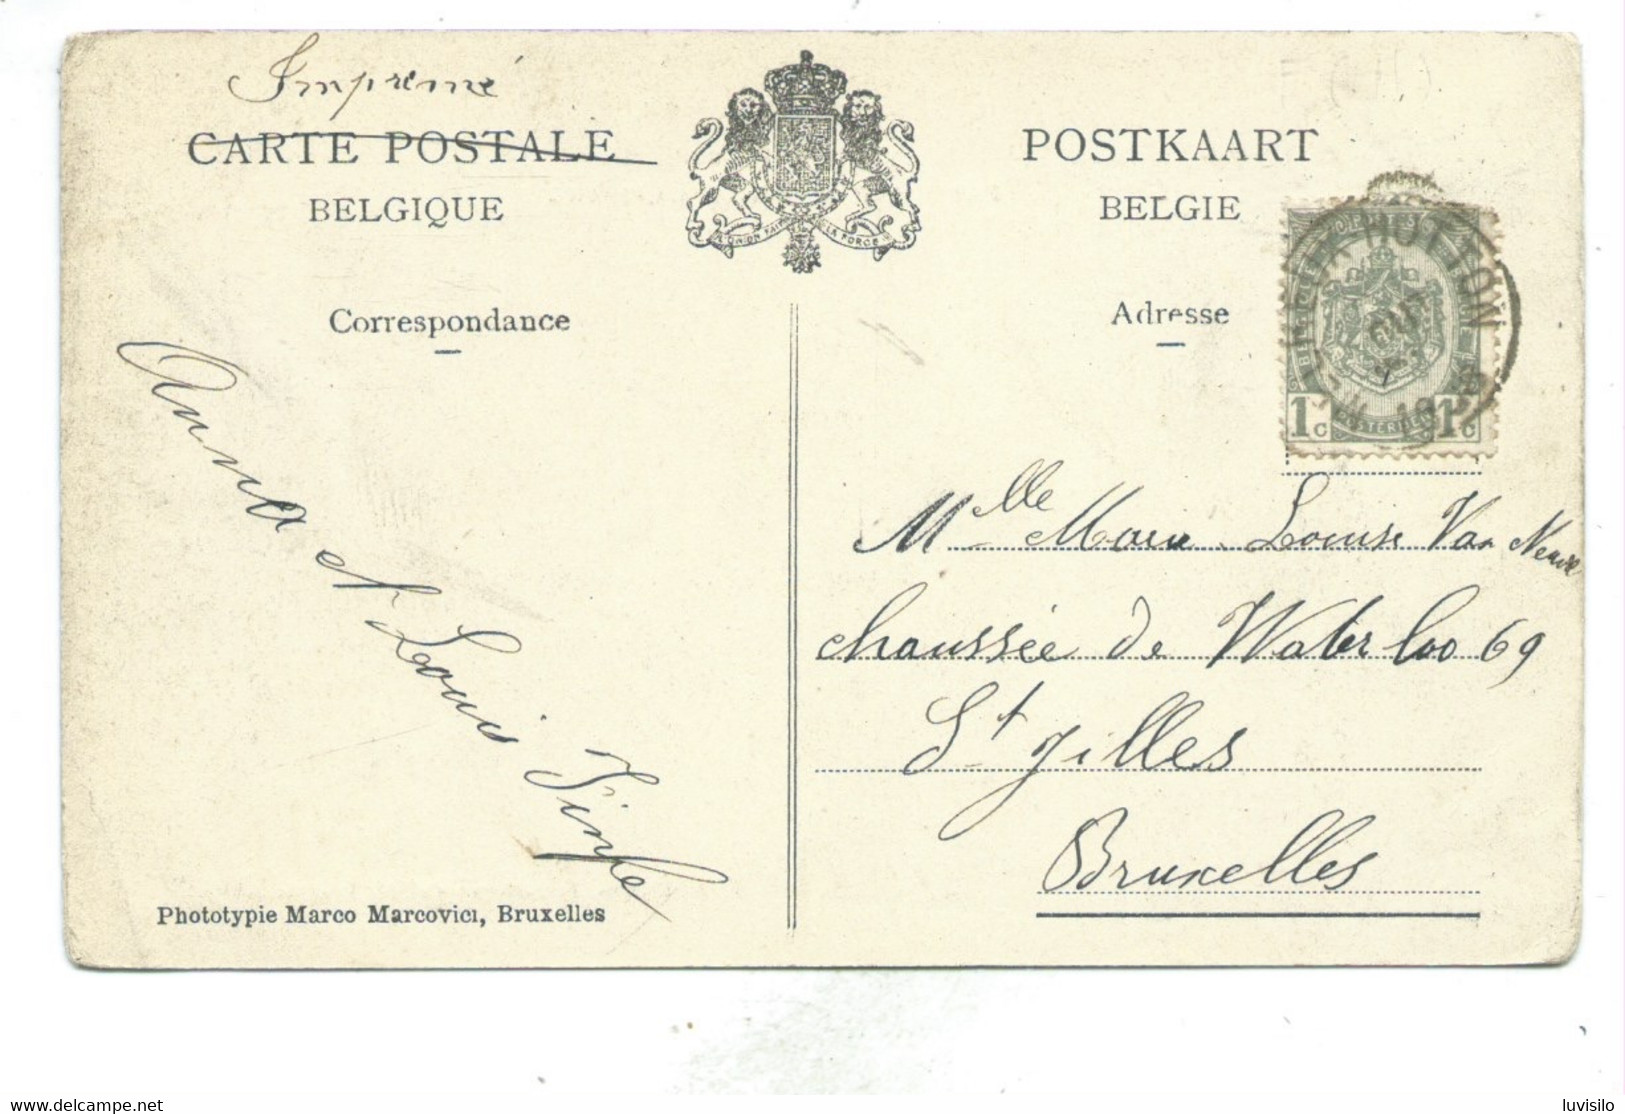 Imprimé
CARTE POSTALE
BELGIQUE
POSTKAART
BELGIE
L'UNION FAIT LA FORCE
Correspondance
Adresse
HOTTON
1c 1c
Anna et Louis
Mlle Marie Louise Van
chaussée de Waterloo 69
St Gilles
Bruxelles
Phototypie Marco Marcovici, Bruxelles
delcampe.net
luvisilo